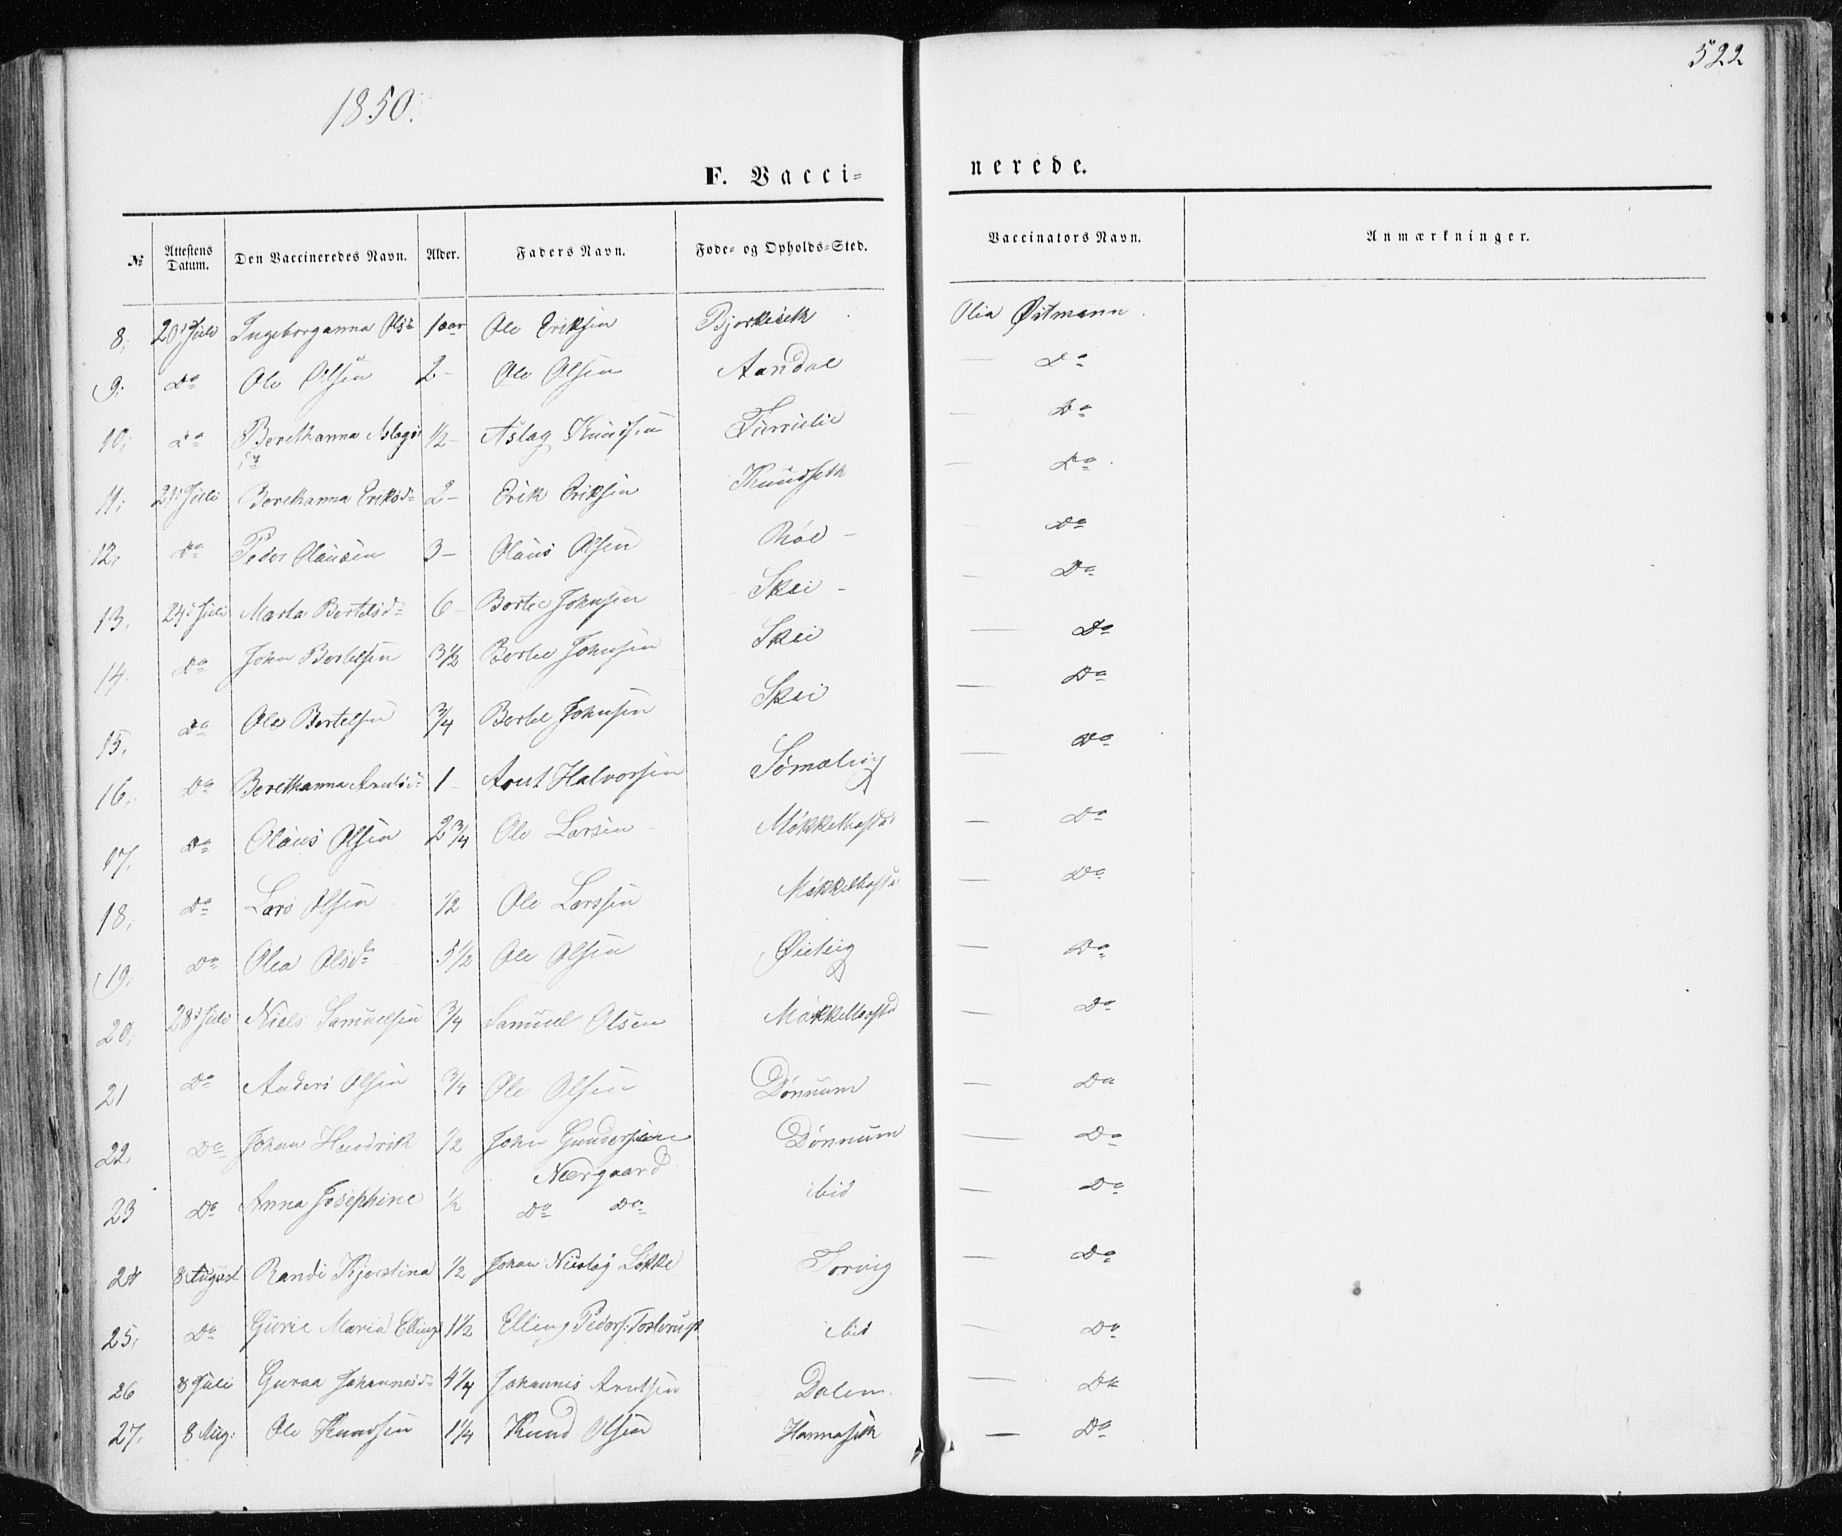 522
1850.
F. Vacci-
nerede.
№ Attestens Datum. Den Vaccineredes Navn. Alder. Faders Navn. Føde- og Opholds-Sted. Vaccinators Navn. Anmærkninger.
8, 20' Juli Ingeborganna Olsd 1 aar Ole Eriksen Bjerkeseth Olia Østmann.
9. Do Ole Olsen 2 - Ole Olsen Aandal — Do
10, Do Berethanna Aslags ½ - Aslag Knudsen — Do
11, 21' Juli Berethanna Eriksd 2 - Erik Eriksen Knudseth — Do
12, Do Peder Olausen 3 - Olaus Olsen Røe - — Do
13, 24' Juli Marta Bertelsd 6 - Bertel Johnsen Skei - — Do
14. Do John Bertelsen 3½ Bertel Johnsen Skei — Do
15, Do Ole Bertelsen ¾ Bertel Johnsen Skei — Do
16, Do Berethanna Arntsd 1 - Arnt Halvorsen — Do
17, Do Olaus Olsen 2 ¾ Ole Larsen — Do
18, Do Lars Olsen ½ Ole Larssen — Do
19, Do Olea Olsd 5 ½ Ole Olsen — Do
20, 28' Juli Niels Samuelsen ¾ Samuel Olsen — Do
21 Do Anders Olsen ¾ Ole Olsen Dønnum — Do
22 Do Johan Hendrik ½ John Gundersen Dønnum — Do
Nærgaard
23 Do Anna Josephine ½ Do Do ibid — Do
24 8 August Randi Kjerstina ½ Johan Nicolay Løkke Torvig — Do
25, Do Gurie Maria Ellings 1½ Elling Peders: ibid — Do
26 8 Juli Guraa Johannesd 4¼ Johannes Arntsen Dalen. — Do
27. 8 Aug: Ole Knudsen 1¼ Knud Olsen Hannaseth — Do